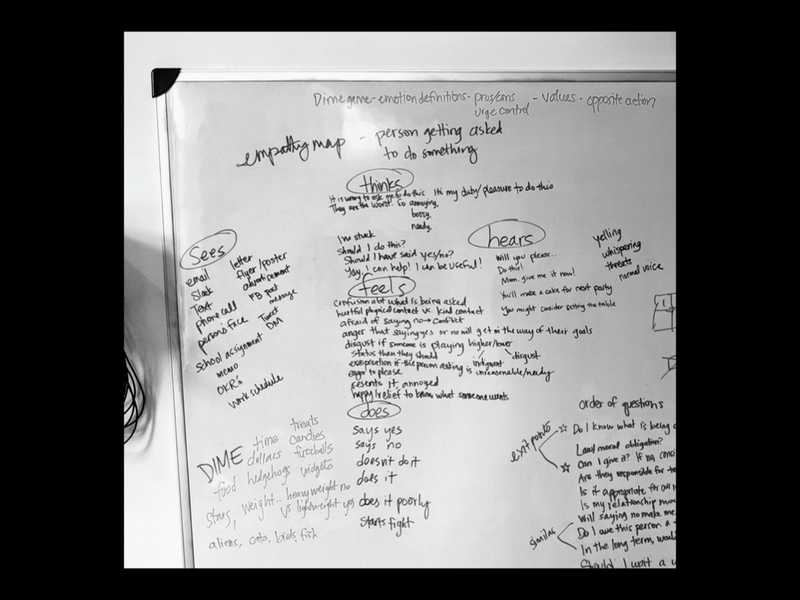 Dime game - emotion definitions - pros/cons - values - opposite action
urge control
empathy map - person getting asked
to do something
thinks
It is wrong to ask me to do this It's my duty/pleasure to do this
They are the worst. So annoying,
bossy,
needy.
I'm stuck
Should I do this?
Should I have said yes/no?
Yay, I can help! I can be useful!
Sees
email
Slack
Text
phone call
person's face
school assignment
memo
OKR's
work schedule
letter
flyer/poster
advertisement
FB post
message
Tweet
DM
hears
Will you please...
Do this!
Mom, give me it now!
You'll make a cake for next party
You might consider setting the table
yelling
whispering
threats
normal voice
feels
confusion abt what is being asked
hurtful physical contact vs. kind contact
afraid of saying no → conflict
anger that saying yes or no will get in the way of their goals
disgust if someone is playing higher/lower
status than they should
indignant
disgust
exasperation if the person asking is unreasonable/needy
eager to please
resents it, annoyed
happy/relief to know what someone wants
does
says yes
says no
doesn't do it
does it
does it poorly
starts fight
DIME
time treats
dollars candies
fireballs
food hedgehogs widgets
stars, weight... heavyweight no
vs lightweight yes
aliens, cats, birds, fish
order of questions
exit points
☆ Do I know what is being
Legal moral obligation?
☆ Can I give it? If no,
Are they responsible for
Is it appropriate for
Is my relationship
Will saying no make me
similar
Do I owe this person a
In the long term,
Should I wait a
1